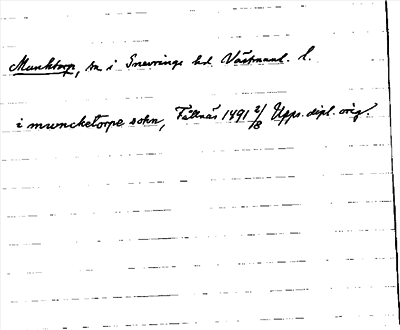 Munktorp, sn i Snevringe hd. Västmanl. l.
i muncketorpe sokn, Fällnäs 1491 2/18 Upps. dipl. orig.